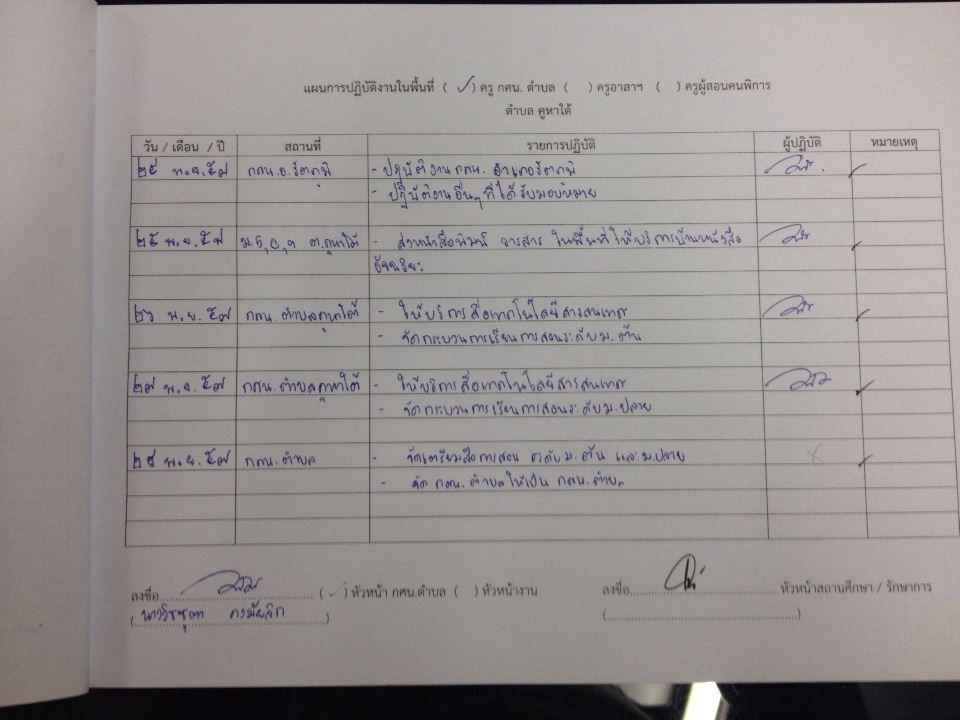 แผนการปฏิบัติงานในพื้นที่ ( ✓ ) ครู กศน. ตำบล ( ) ครูอาสาฯ ( ) ครูผู้สอนคนพิการ
ตำบล คูหาใต้
วัน / เดือน / ปี สถานที่ รายการปฏิบัติ ผู้ปฏิบัติ หมายเหตุ
พ.ย. ๕๗ กศน.อ.รัตภูมิ - ปฏิบัติงาน กศน. อำเภอรัตภูมิ
- ปฏิบัติงานอื่นๆ ที่ได้รับมอบหมาย
๒๕ พ.ย. ๕๗ ต.คูหาใต้ - ส่งหนังสือพิมพ์ วารสาร ในพื้นที่ให้บริการบ้านหนังสือ
อัจฉริยะ
๒๖ พ.ย. ๕๗ กศน.ตำบลคูหาใต้ - ให้บริการสื่อเทคโนโลยีสารสนเทศ
- จัดกระบวนการเรียนการสอนระดับ ม.ต้น
๒๗ พ.ย. ๕๗ กศน.ตำบลคูหาใต้ - ให้บริการสื่อเทคโนโลยีสารสนเทศ
- จัดกระบวนการเรียนการสอนระดับ ม.ปลาย
๒๘ พ.ย. ๕๗ กศน.ตำบล - จัดเตรียมสื่อการสอน ระดับ ม.ต้น และ ม.ปลาย
- จัด กศน.ตำบลให้เป็น กศน.ตำบล
ลงชื่อ ( ✓ ) หัวหน้า กศน.ตำบล ( ) หัวหน้างาน ลงชื่อ หัวหน้าสถานศึกษา / รักษาการ